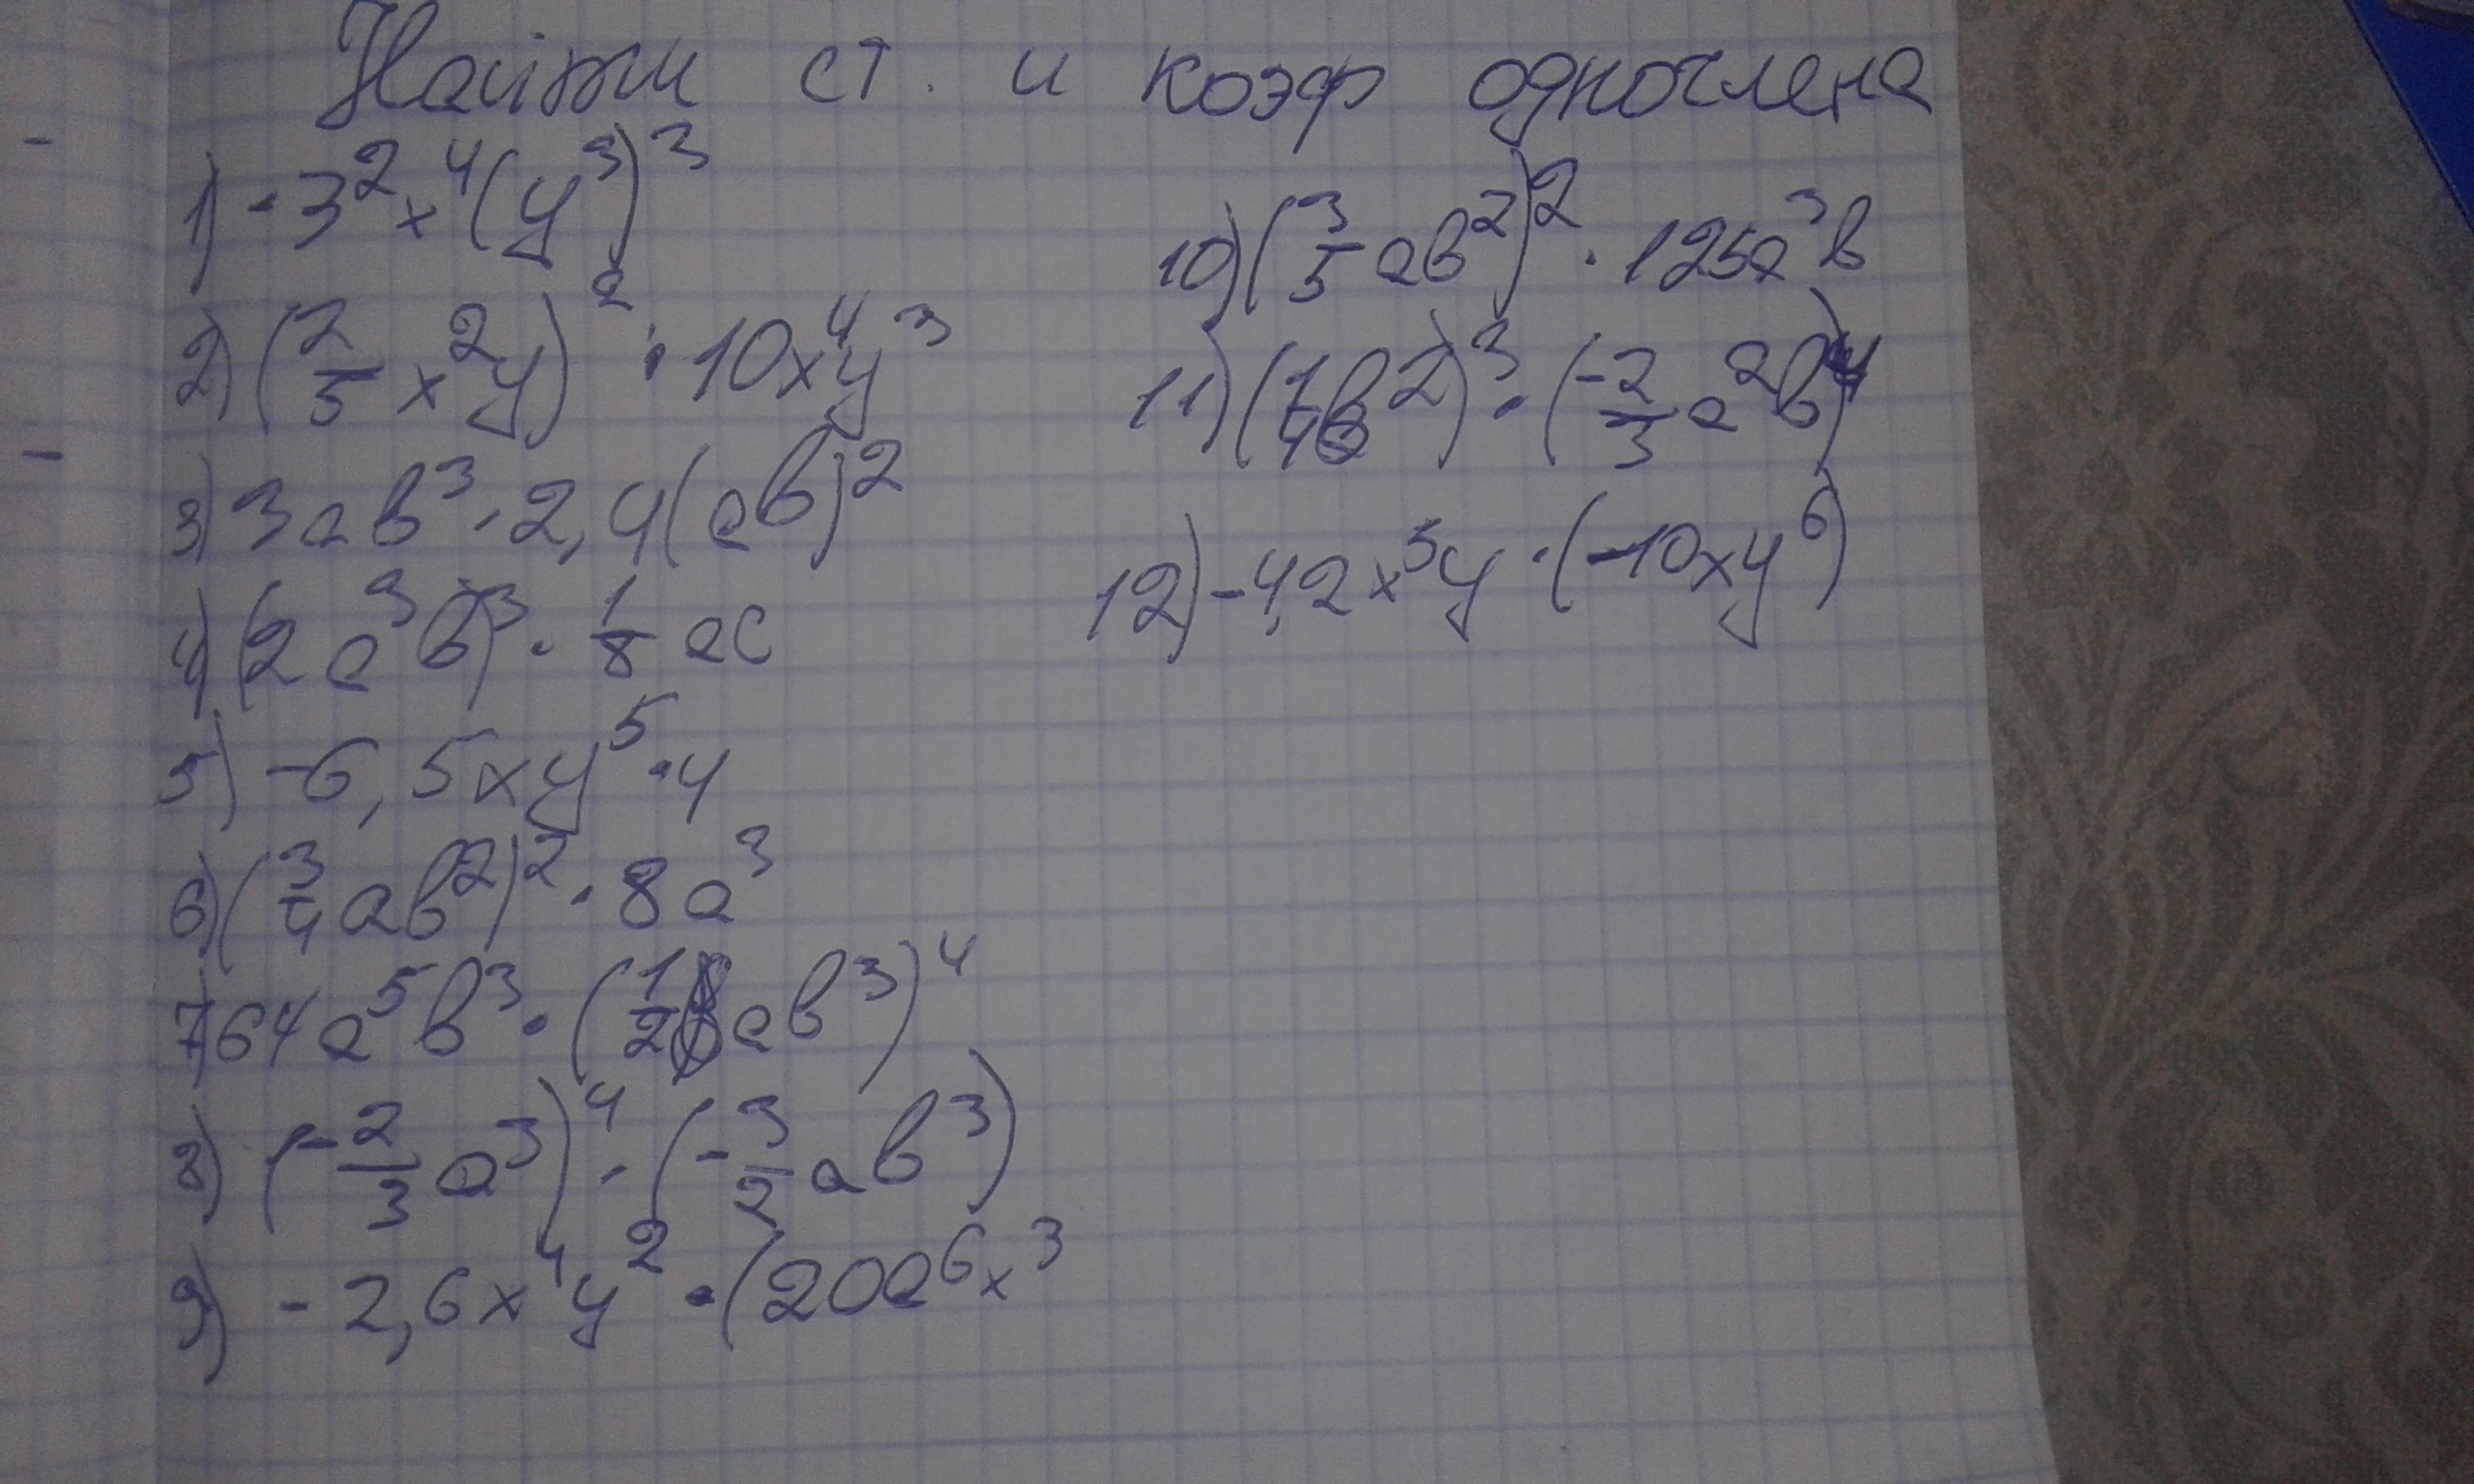 Найти ст. и коэф одночлена
1) -3²x⁴(y³)³
2) (2/5 x²y)² · 10x⁴y³
3) 3ав³ · 2,4(ав)²
4) (2а³в)³ · 1/8 ас
5) -6,5xy⁵ · 4
6) (3/4 ав²)² · 8а³
7) 64а⁵в³ · (1/2 ав³)⁴
8) (-2/3 а³)⁴ · (-3/2 ав³)
9) -2,6x⁴y² · (20а⁶x³
10) (3/5 ав²)² · 125а³в
11) (1/4 в²)³ · (-2/3 а²в⁴)
12) -4,2x⁵y · (-10xy⁶)